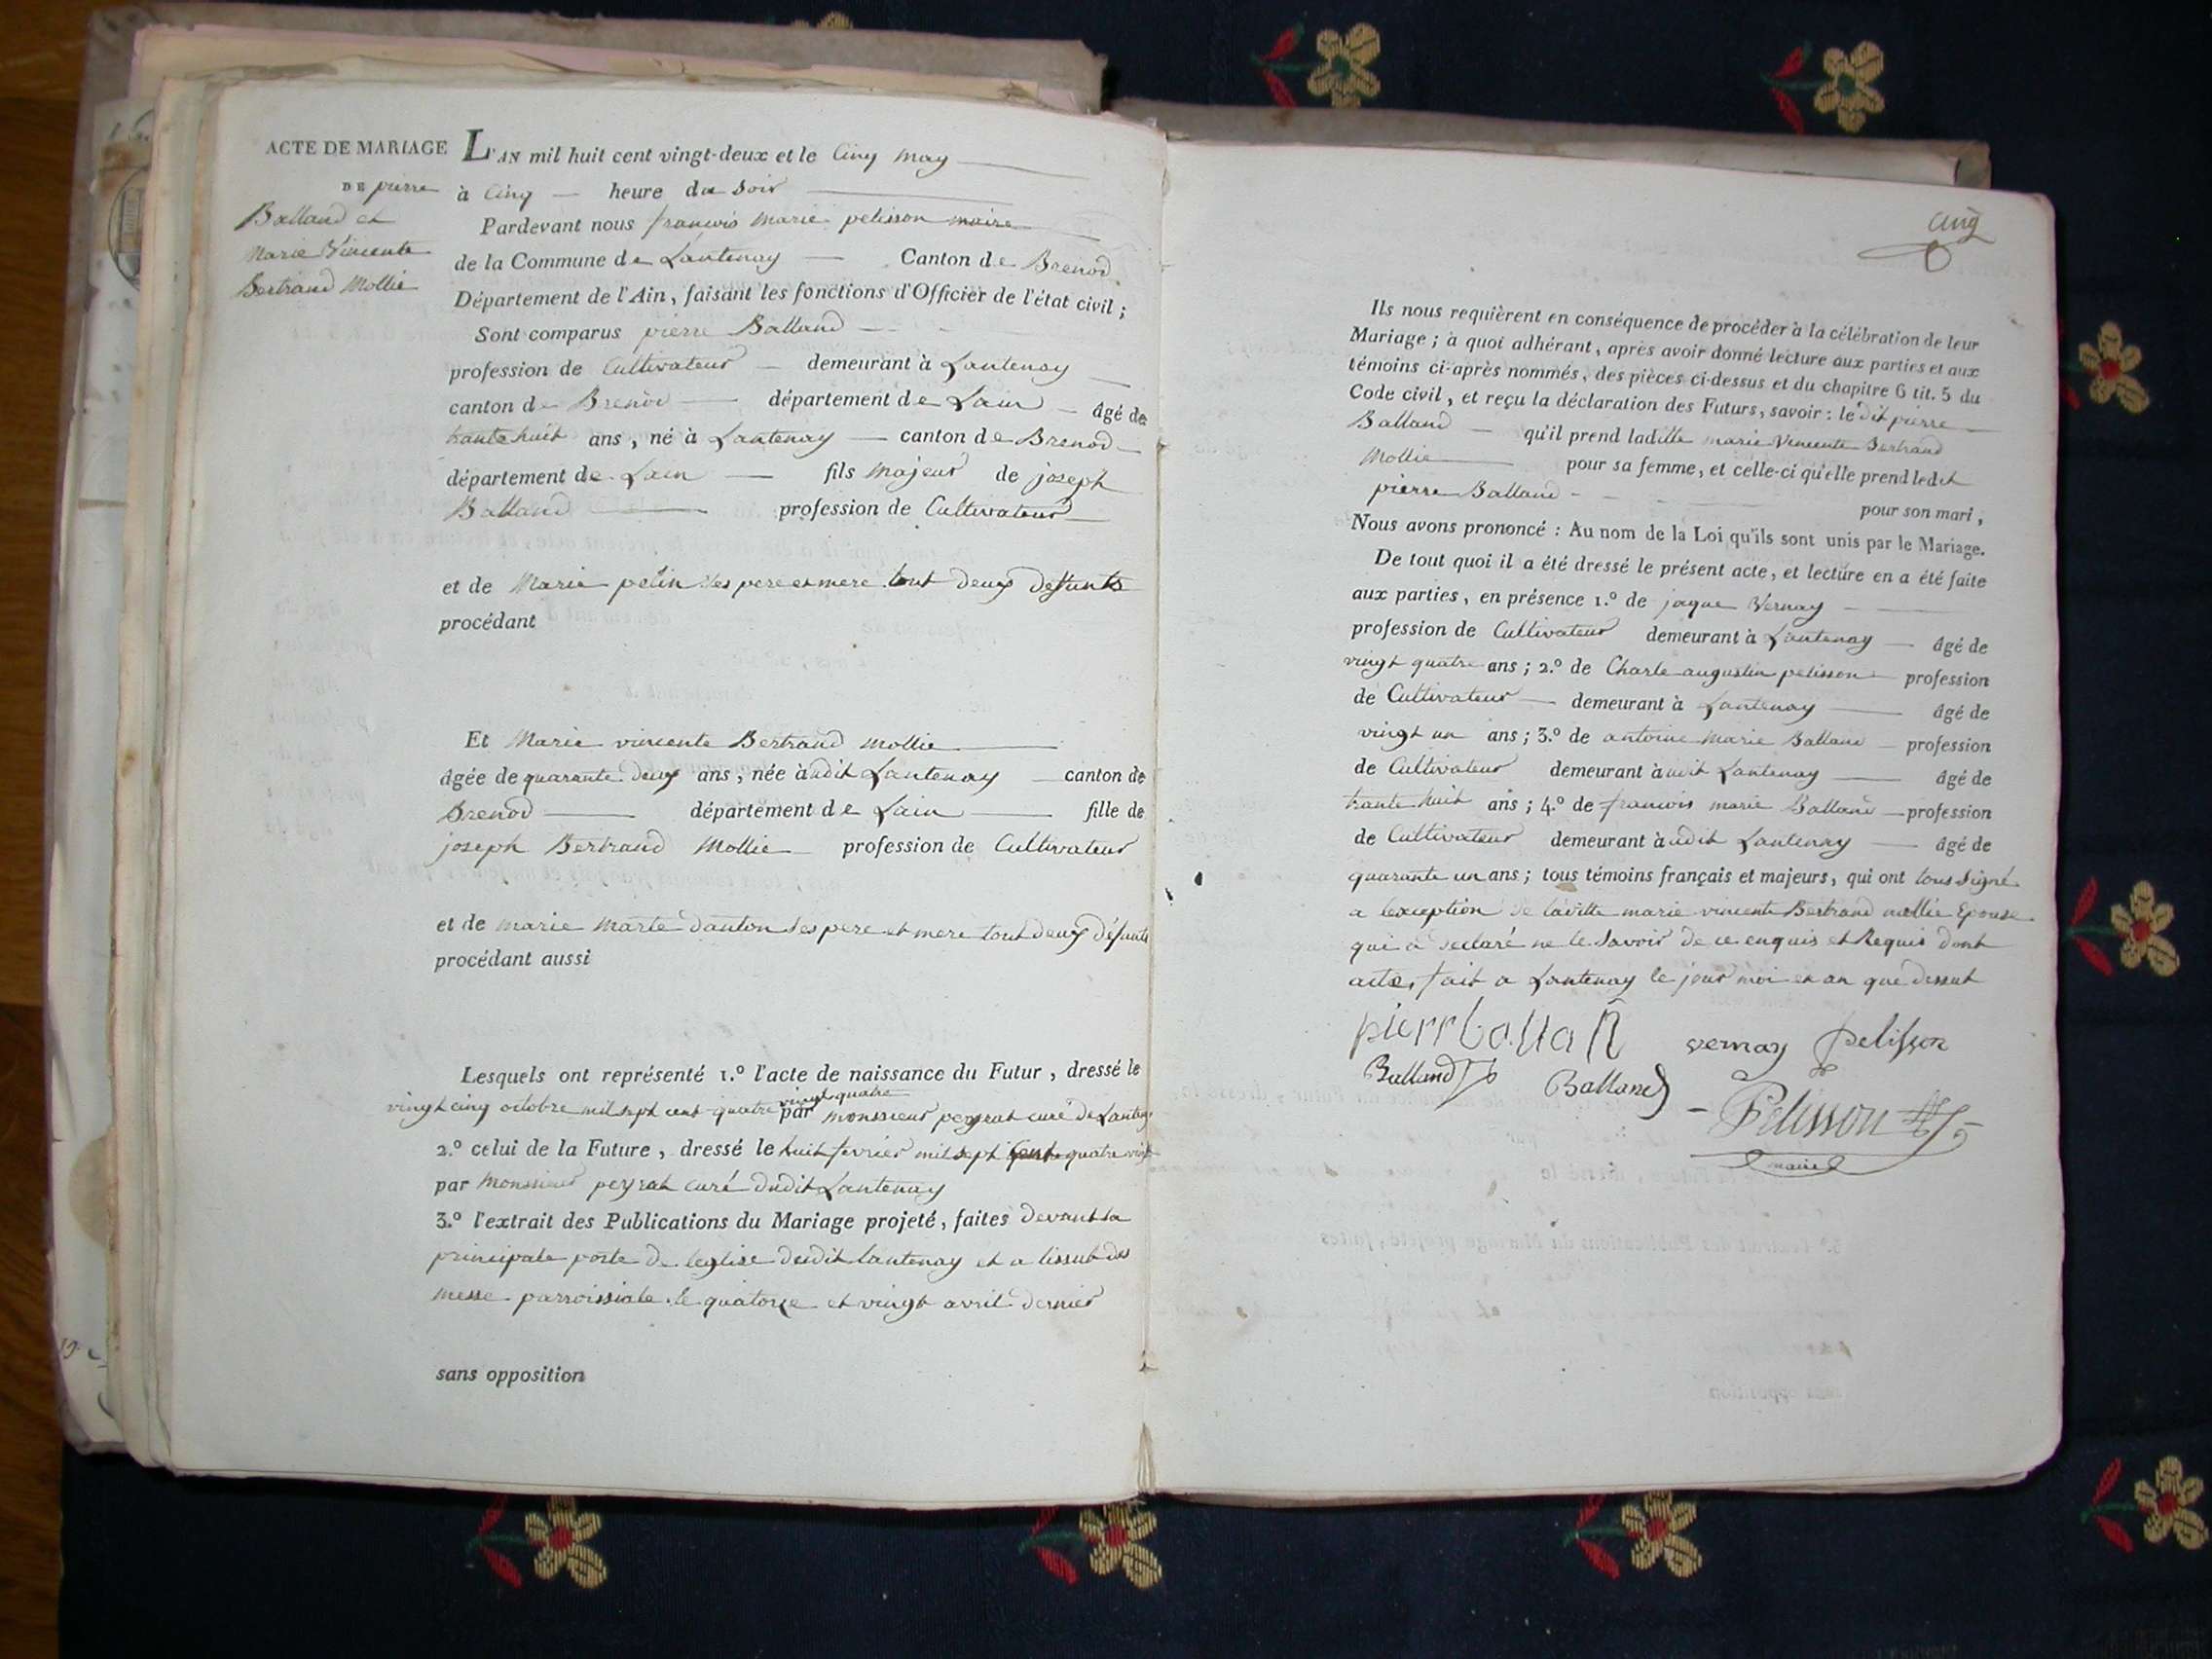 ACTE DE MARIAGE
DE pierre
Balland et
Marie Vincente
Bertrand Mollie
L'AN mil huit cent vingt-deux et le Cinq may
à Cinq heure du soir
Pardevant nous francois marie pelisson maire
de la Commune de Lantenay Canton de Brenod
Département de l'Ain, faisant les fonctions d'Officier de l'état civil ;
Sont comparus pierre Balland
profession de Cultivateur demeurant à Lantenay
canton de Brenod département de Lain âgé de
trante huit ans, né à Lantenay canton de Brenod
département de Lain fils majeur de joseph
Balland profession de Cultivateur
et de Marie pelin ses pere et mere tout deux deffunts
procédant
Et Marie vincente Bertrand mollie
âgée de quarante deux ans, née à udit Lantenay canton de
Brenod département de Lain fille de
joseph Bertrand Mollie profession de Cultivateur
et de marie marte danton ses pere et mere tout deux défunts
procédant aussi
Lesquels ont représenté 1.º l'acte de naissance du Futur, dressé le
vingt quatre
vingt cinq octobre mil sept cent quatre par monsieur peyrat curé de Lantenay
2.º celui de la Future, dressé le huit fevrier mil sept cent quatre vingt
par Monsieur peyrat curé dudit Lantenay
3.º l'extrait des Publications du Mariage projeté, faites devant la
principale porte de leglise dudit lantenay et a lissut des
messe parroissiale le quatorze et vingt avril dernier
sans opposition
Cinq
Ils nous requièrent en conséquence de procéder à la célébration de leur
Mariage ; à quoi adhérant, après avoir donné lecture aux parties et aux
témoins ci-après nommés, des pièces ci-dessus et du chapitre 6 tit. 5 du
Code civil, et reçu la déclaration des Futurs, savoir : le dit pierre
Balland qu'il prend laditte marie Vincente Bertrand
Mollie pour sa femme, et celle-ci qu'elle prend ledit
pierre Balland
pour son mari,
Nous avons prononcé : Au nom de la Loi qu'ils sont unis par le Mariage.
De tout quoi il a été dressé le présent acte, et lecture en a été faite
aux parties, en présence 1.º de jaque Vernay
profession de Cultivateur demeurant à Lantenay âgé de
vingt quatre ans ; 2.º de Charle augustin pelisson profession
de Cultivateur demeurant à Lantenay âgé de
vingt un ans ; 3.º de antoine marie Balland profession
de Cultivateur demeurant à udit Lantenay âgé de
trante huit ans ; 4.º de francois marie Balland profession
de Cultivateur demeurant à udit Lantenay âgé de
quarante un ans ; tous témoins français et majeurs, qui ont tous signé
a lexception de laditte marie vincente Bertrand mollie Epouse
qui a declaré ne le savoir de ce enquis et Requis dont
acte, fait a Lantenay le jour moi et an que dessut
vernay pelisson
Balland Balland
Pelisson
maire